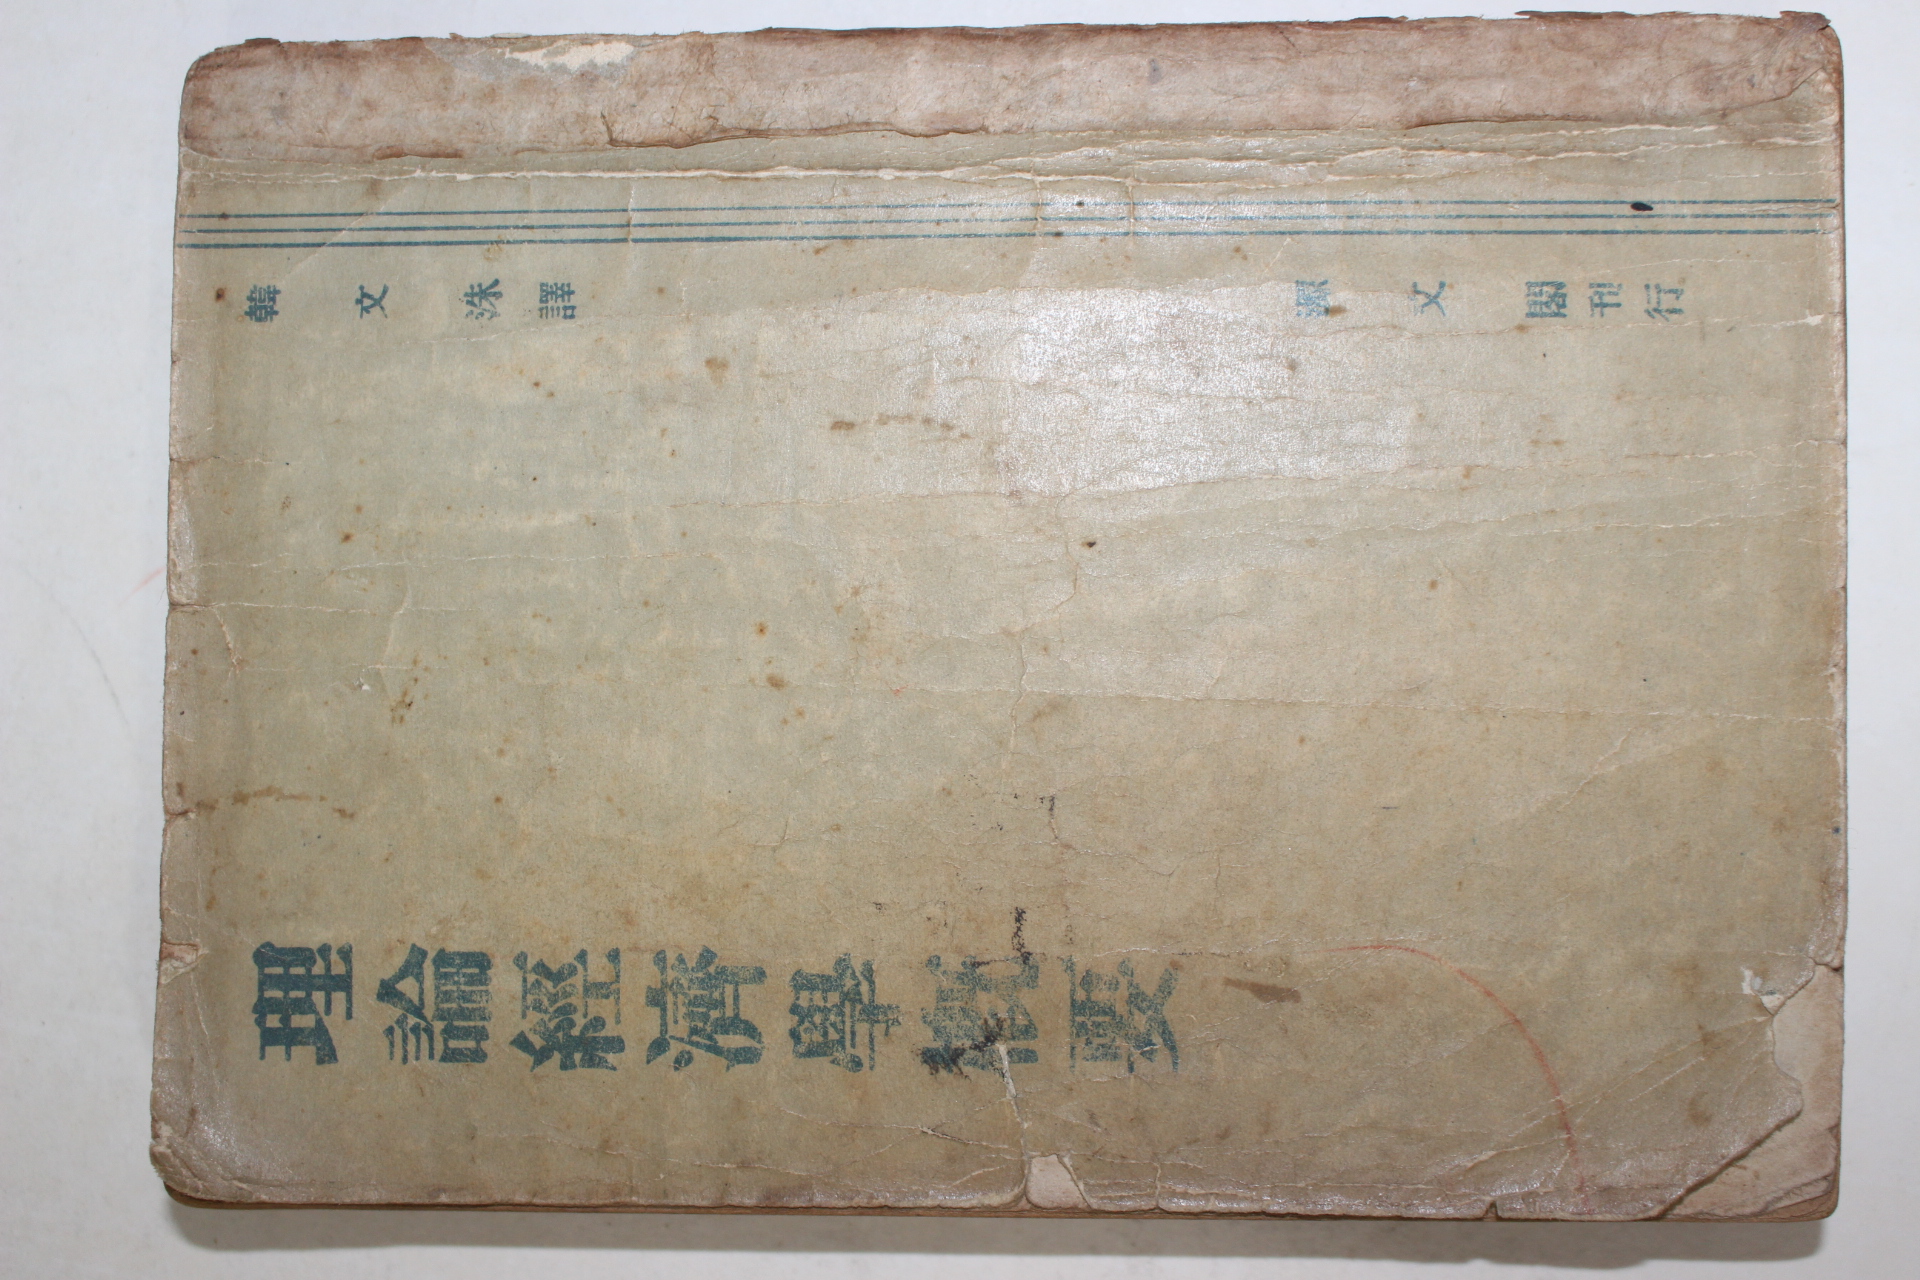 理論經濟學槪要
韓文洙譯
文閣刊行